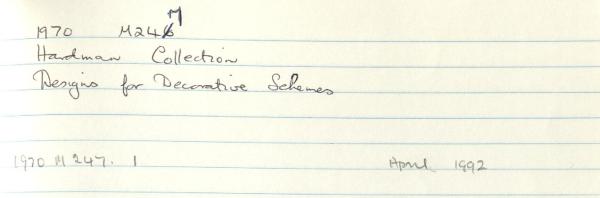 1970 M247
Hardman Collection
Designs for Decorative Schemes
1970 M 247. 1 April 1992